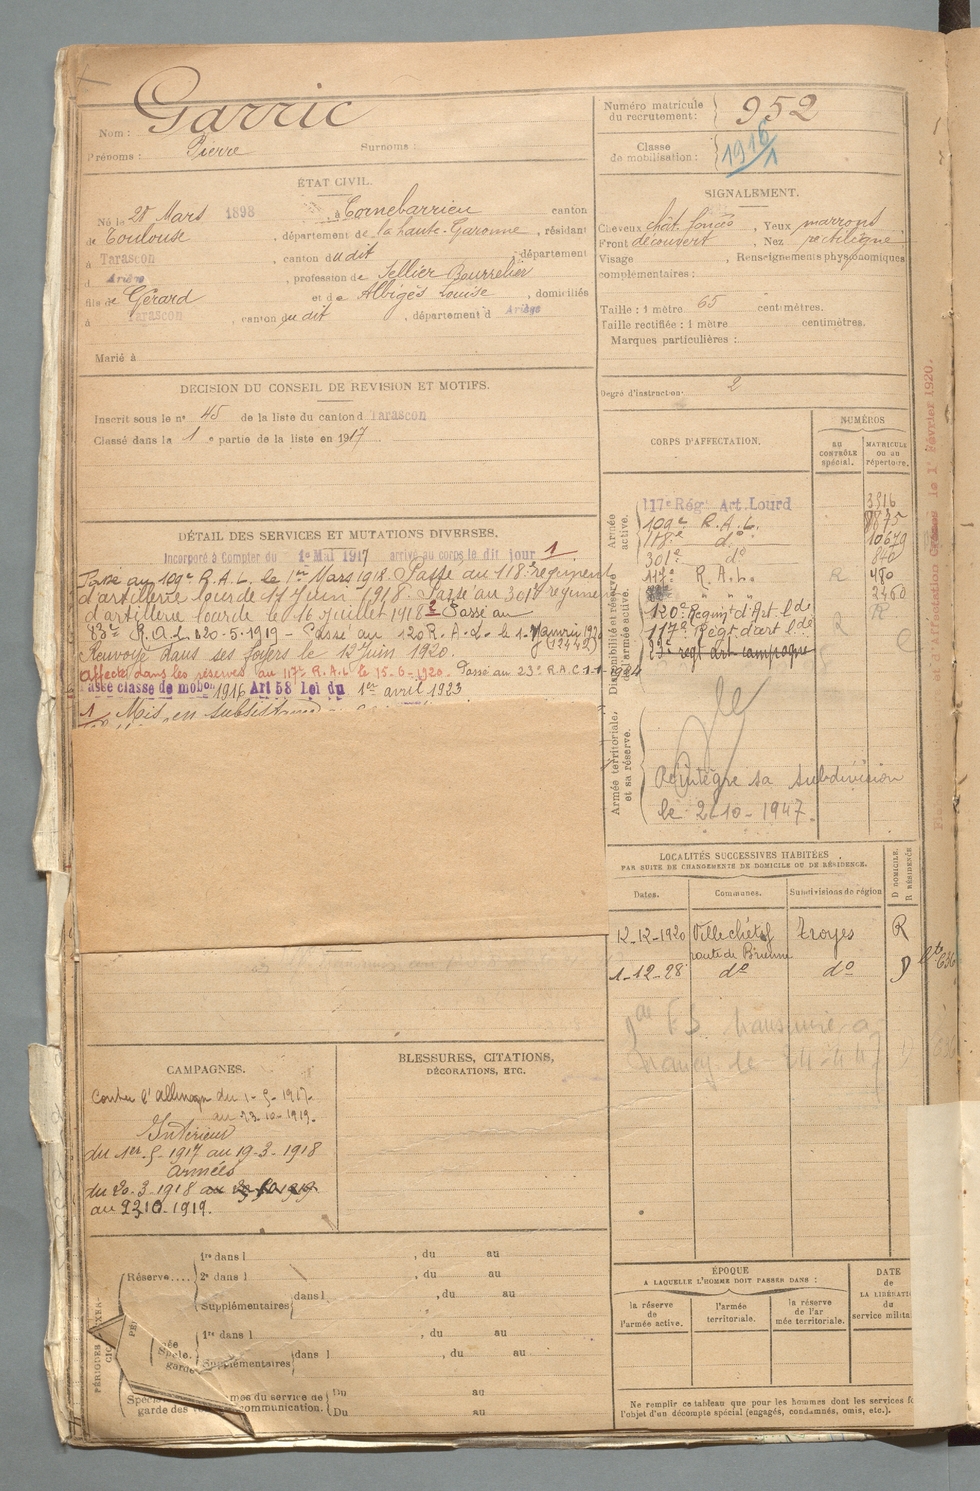 Nom : Garric
Prénoms : Pierre Surnoms :
Numéro matricule du recrutement : 952
Classe de mobilisation : 1916/1
ÉTAT CIVIL.
Né le 28 Mars 1898, à Cornebarrieu canton
de Toulouse, département de la haute-Garonne, résidant
à Tarascon, canton du dit, département
d Ariège, profession de Sellier Bourrelier
fils de Gérard et de Albigès Louise, domiciliés
à Tarascon, canton du dit, département d Ariège
Marié à
SIGNALEMENT.
Cheveux chât. foncés, Yeux marrons
Front découvert, Nez rectiligne
Visage , Renseignements physionomiques
complémentaires :
Taille : 1 mètre 65 centimètres.
Taille rectifiée : 1 mètre centimètres.
Marques particulières :
Degré d'instruction : 2
DECISION DU CONSEIL DE REVISION ET MOTIFS.
Inscrit sous le no 45 de la liste du canton d Tarascon
Classé dans la 1 e partie de la liste en 1917
DÉTAIL DES SERVICES ET MUTATIONS DIVERSES.
Incorporé à Compter du 1er Mai 1917 arrivé au corps le dit jour 1
Passé au 109e R.A.L. le 1er Mars 1918. Passé au 118e régiment
d'artillerie lourde 17 Juin 1918. Passé au 301e régiment
d'artillerie lourde le 16 Juillet 1918 2 Passé au
83e R.A.L. 20-5-1919 - Passé au 120 R.A.L. le 1er Janvier 1920
(12442)
Renvoyé dans ses foyers le 12 Juin 1920.
Affecté dans les réserves au 117e R.A.L. le 15-6-1920. Passé au 23e R.A.C. 1-1-1924
Passé classe de mobon 1916 Art 58 Loi du 1er avril 1923
1 Mis en subsistance
CORPS D'AFFECTATION.
NUMÉROS
AU CONTRÔLE spécial.
MATRICULE ou au répertoire.
Armée active.
117e Rég. Art. Lourd 3516
109e R.A.L. 7875
118e do 10679
301e do 840
117e R.A.L. R 480
" " 2460
Disponibilité et réserve de l'armée active.
120e Regimt d'Art. lde R
117e Régt d'art lde 2
23e regt art campagne
Armée territoriale et sa réserve.
Réintègre sa subdivision
le 2-10-1947.
et d'Affectation Créées le 1er Février 1920.
LOCALITÉS SUCCESSIVES HABITÉES
PAR SUITE DE CHANGEMENTS DE DOMICILE OU DE RÉSIDENCE.
Dates. Communes. Subdivisions de région D DOMICILE. R RÉSIDENCE
12-12-1920 Villechétif Troyes R
route de Brienne
1-12-28 do do D
CAMPAGNES.
Contre l'Allemagne du 1-5-1917
au 23-10-1919.
Intérieur
du 1er-5-1917 au 19-3-1918
Armées
du 20-3-1918
au 23 10-1919.
BLESSURES, CITATIONS,
DÉCORATIONS, ETC.
Réserve....
1re dans l , du au
2e dans l , du au
Supplémentaires dans l , du au
1re dans l , du au
Supplémentaires dans l , du au
mes du service de Du au
garde des communication. Du au
ÉPOQUE
A LAQUELLE L'HOMME DOIT PASSER DANS :
la réserve de l'armée active.
l'armée territoriale.
la réserve de l'armée territoriale.
DATE de LA LIBÉRATI du service milita
Ne remplir ce tableau que pour les hommes dont les services fo
l'objet d'un décompte spécial (engagés, condamnés, omis, etc.).